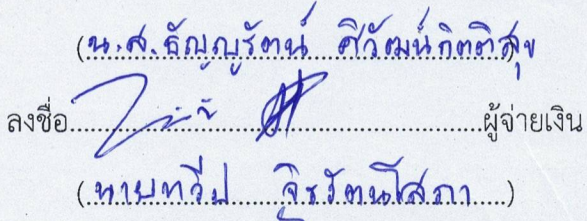 (น.ส.ธัญญรัตน์ ศิวัฒน์กิตติสุข)
ลงชื่อ....................ผู้จ่ายเงิน
(นายทวีป จิรรัตนโสภา)